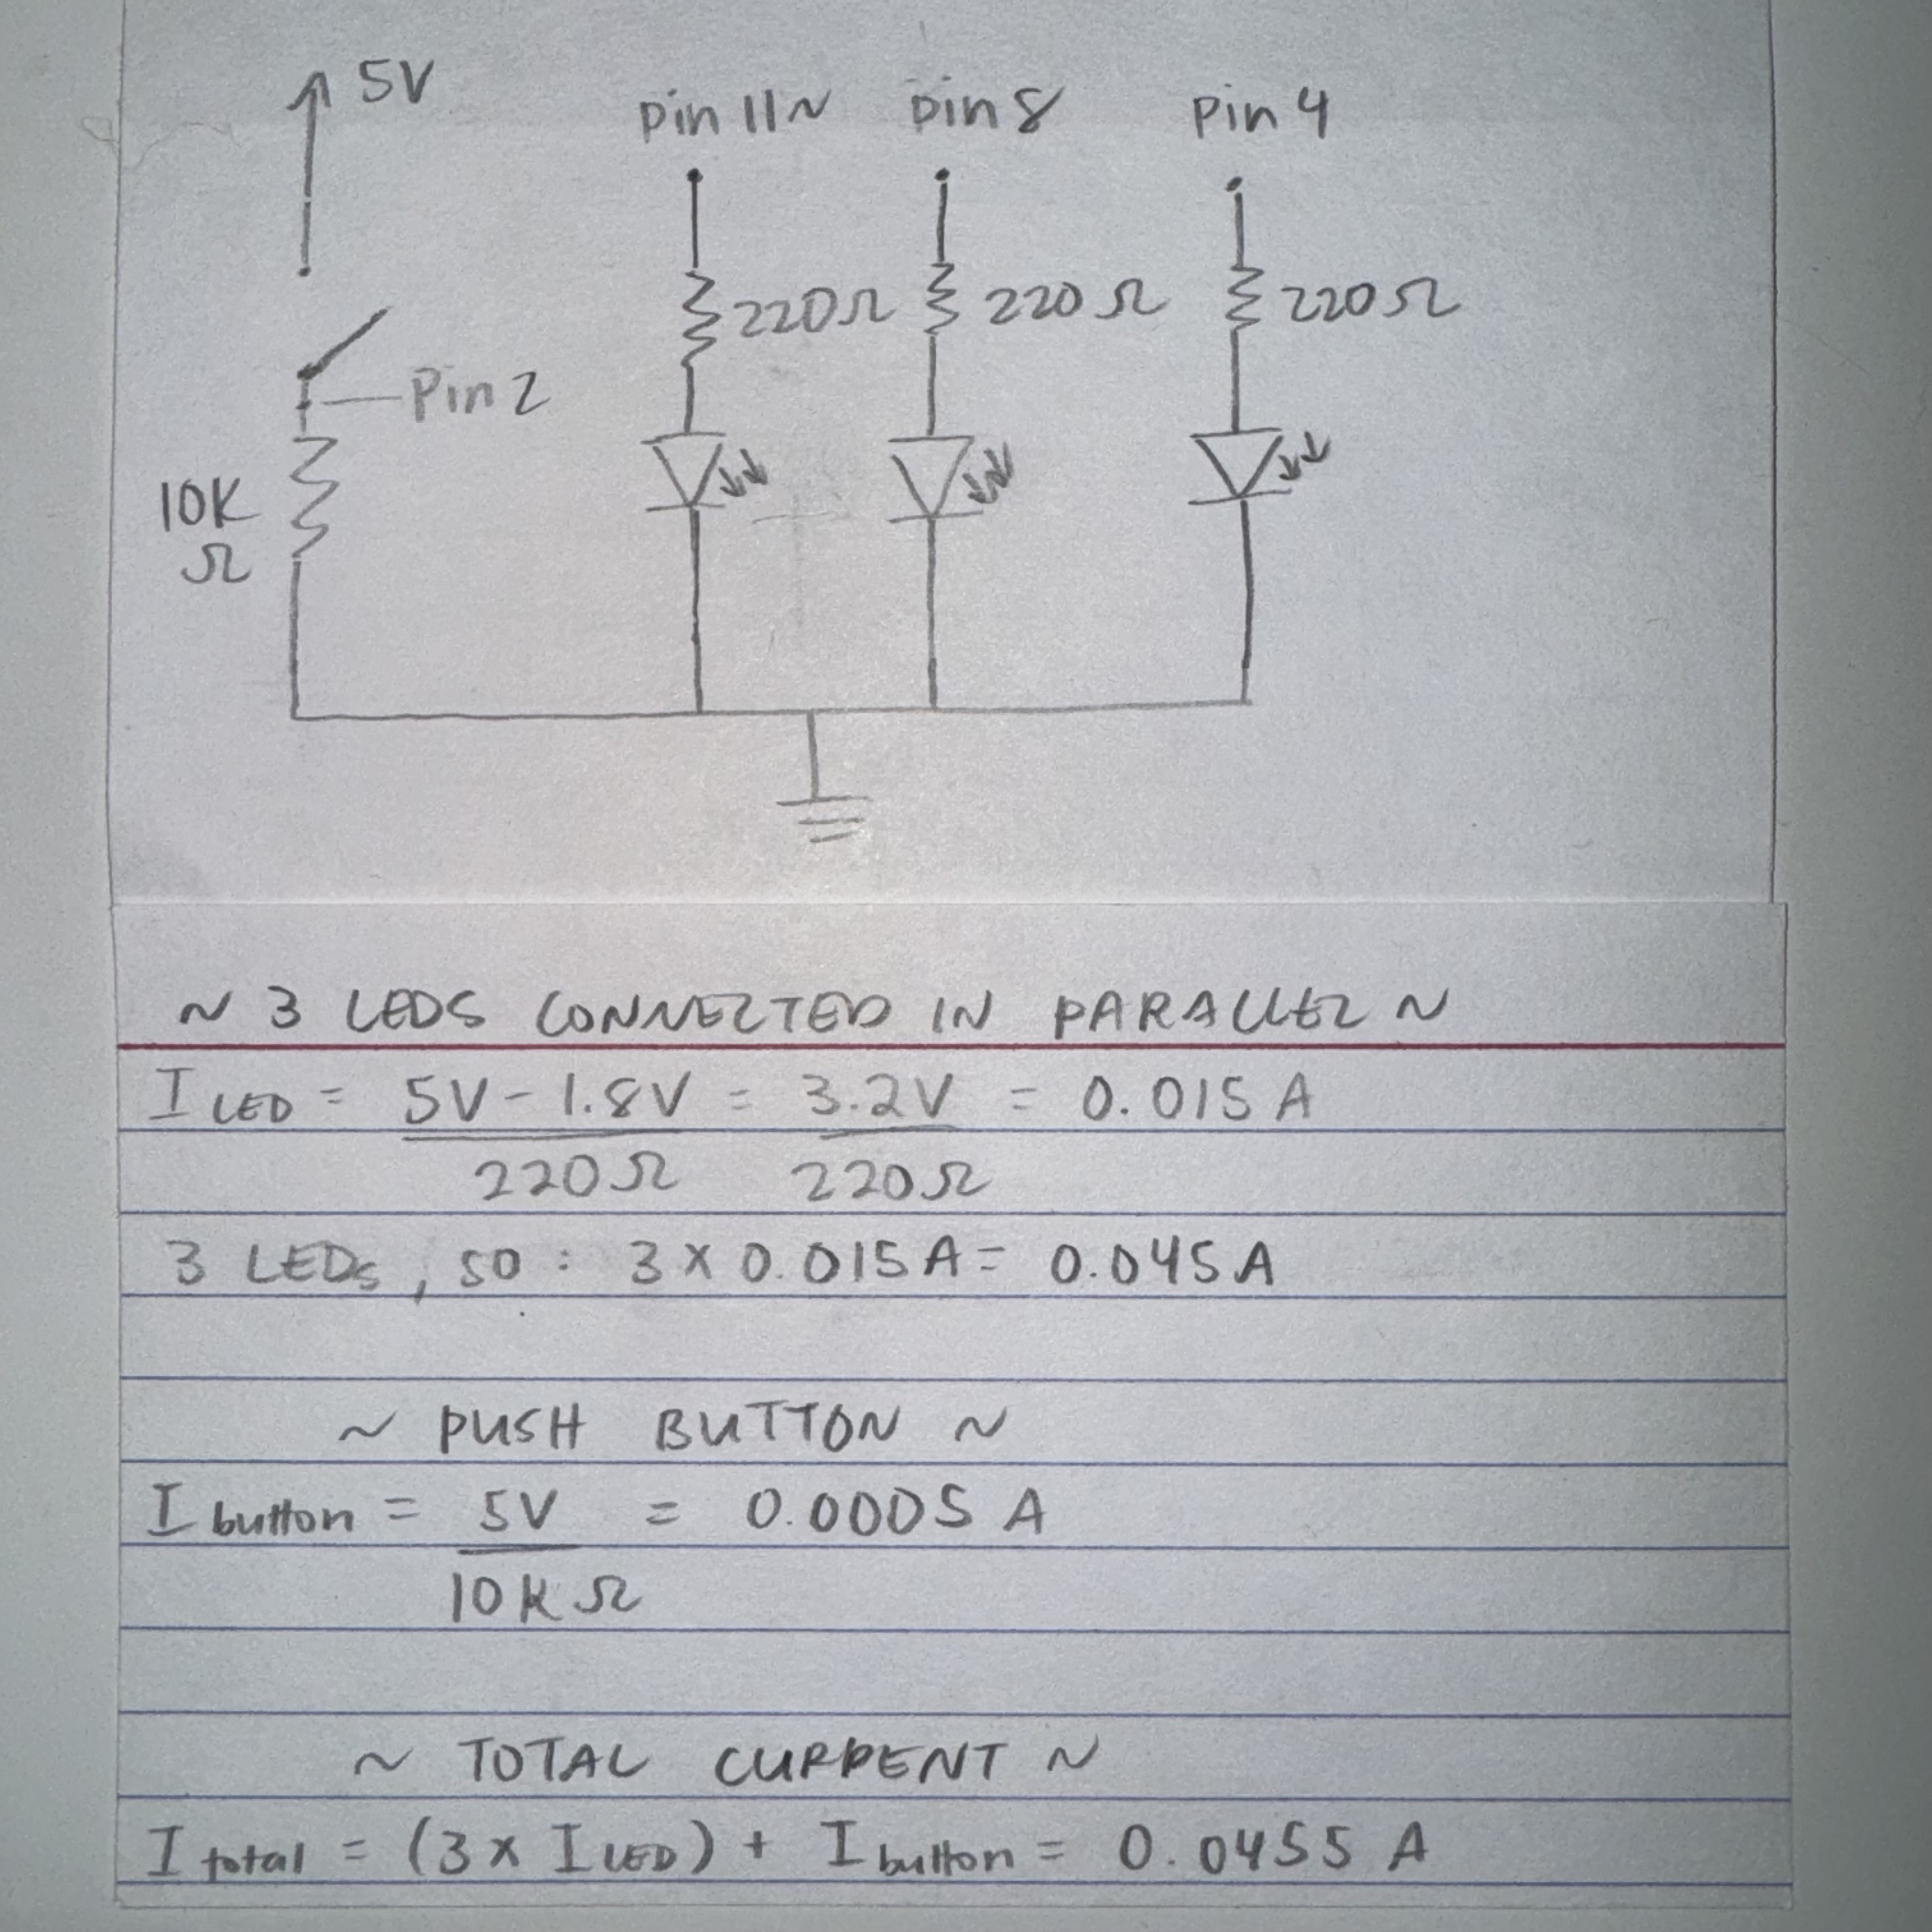 5V
pin 11~ pin 8 pin 4
220Ω 220Ω 220Ω
Pin 2
10K
Ω
~ 3 LEDS CONNECTED IN PARALLEL ~
I LED = 5V - 1.8V = 3.2V = 0.015 A
220Ω 220Ω
3 LEDs, so : 3 x 0.015A = 0.045A
~ PUSH BUTTON ~
I button = 5V = 0.0005 A
10kΩ
~ TOTAL CURRENT ~
I total = (3 x I LED) + I button = 0.0455 A